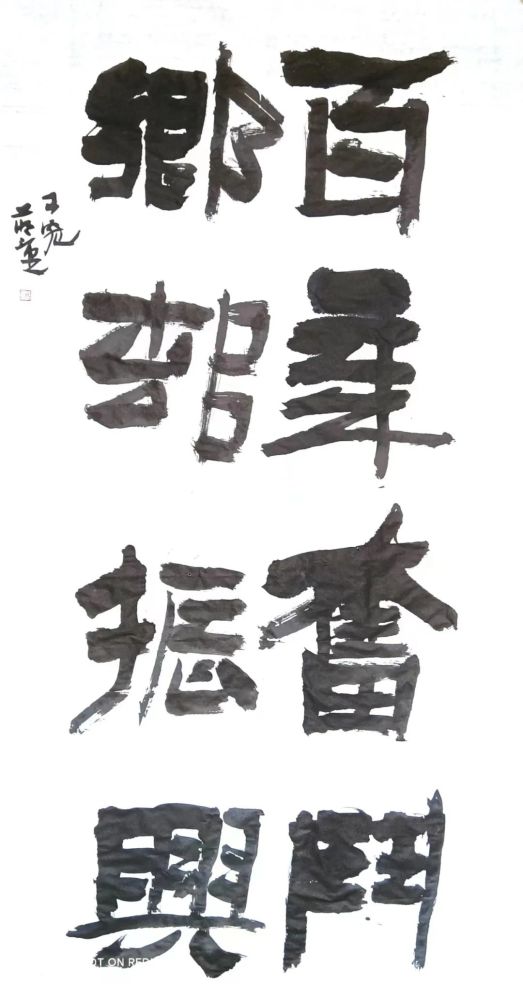 百年奮鬥
鄉邨振興
OT ON RED